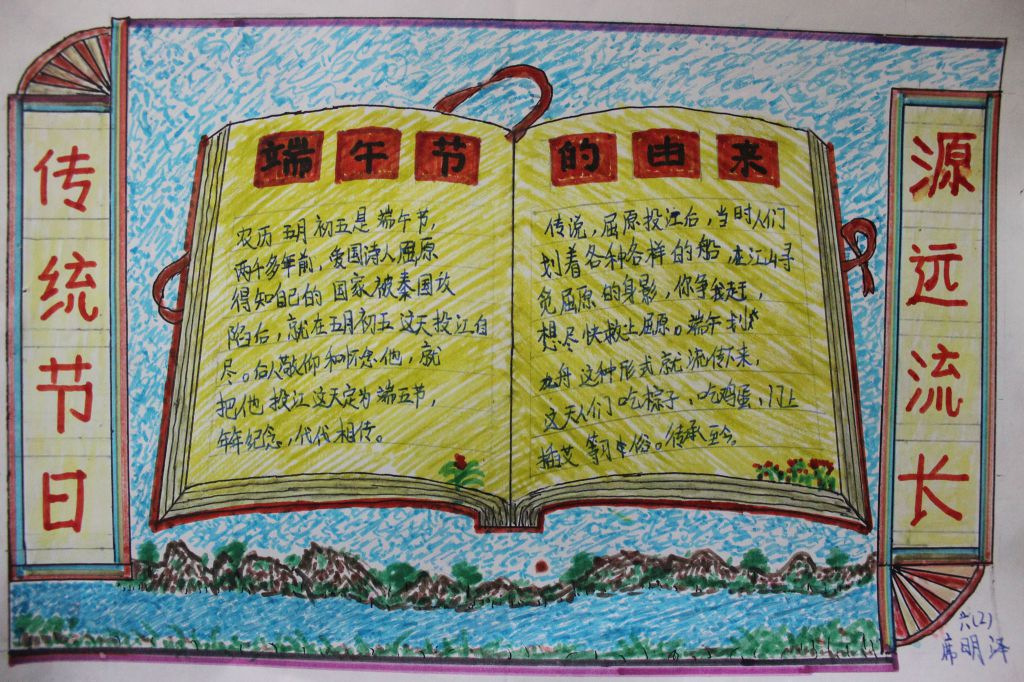 传统节日
端午节的由来
农历五月初五是端午节,
两千多年前,爱国诗人屈原
得知自己的国家被秦国攻
陷后,就在五月初五这天投江自
尽。后人敬仰和怀念他,就
把他投江这天定为端五节,
年年纪念,代代相传。
传说,屈原投江后,当时人们
划着各种各样的船,在江山寻
觅屈原的身影,你争我赶,
想尽快救上屈原。端午划
龙舟这种形式就流传下来,
这天人们吃粽子、吃鸡蛋,门上
插艾等习俗。传承至今。
源远流长
六(2)
席明泽